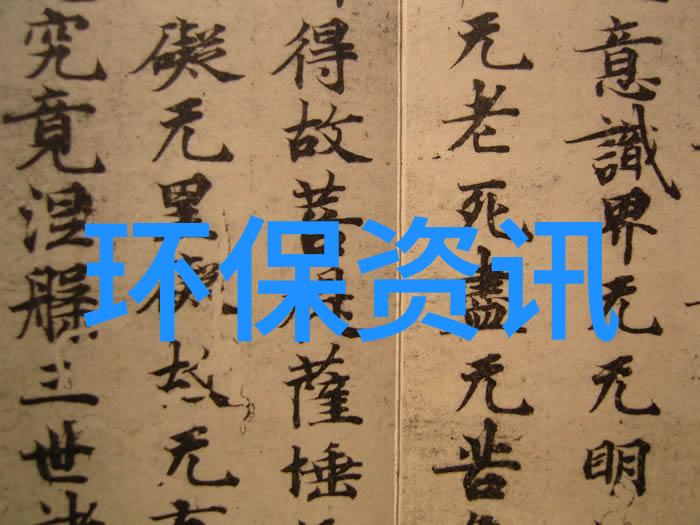 意識界无无明
无老死盡无苦
得故菩提薩埵
礙无罣礙故无有
究竟涅槃三世諸
环保资讯